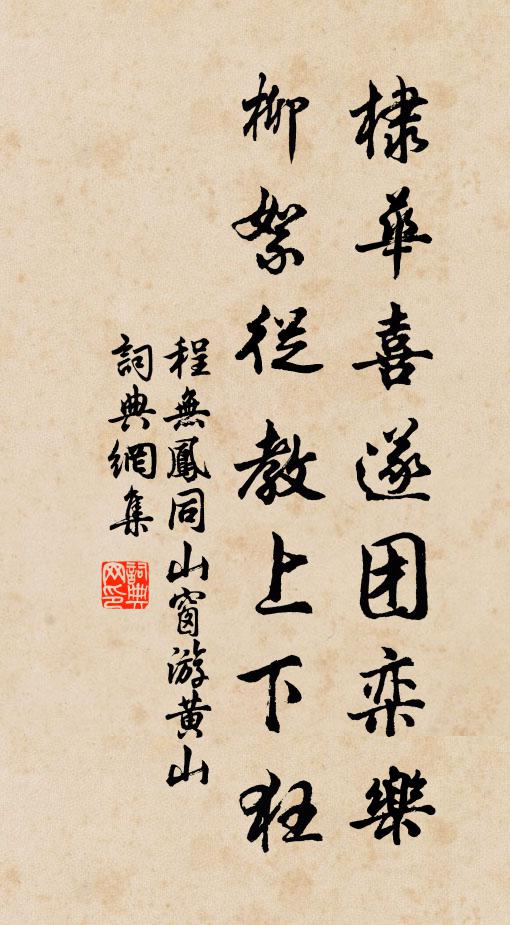 棣華喜遂团栾樂
柳絮從教上下狂
程無鳳同山窗游黄山
詞典網集
詞典網印